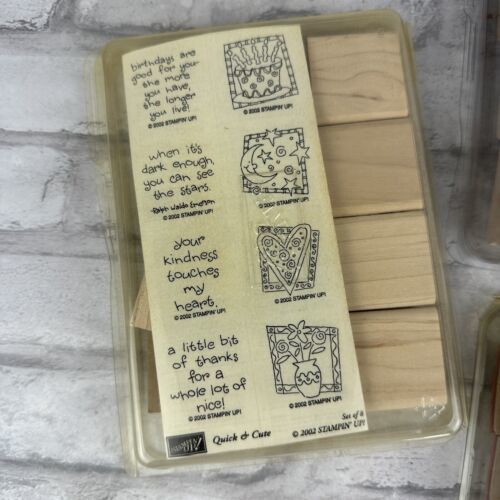 birthdays are
good for you–
the more
you have,
the longer
you live!
© 2002 STAMPIN' UP!
© 2002 STAMPIN' UP!
when it's
dark enough,
you can see
the stars.
Ralph Waldo Emerson
© 2002 STAMPIN' UP!
© 2002 STAMPIN' UP!
your
kindness
touches
my
heart.
© 2002 STAMPIN' UP!
© 2002 STAMPIN' UP!
a little bit
of thanks
for a
whole lot of
nice!
© 2002 STAMPIN' UP!
© 2002 STAMPIN' UP!
Set of 8
STAMPIN' UP! Quick & Cute © 2002 STAMPIN' UP!